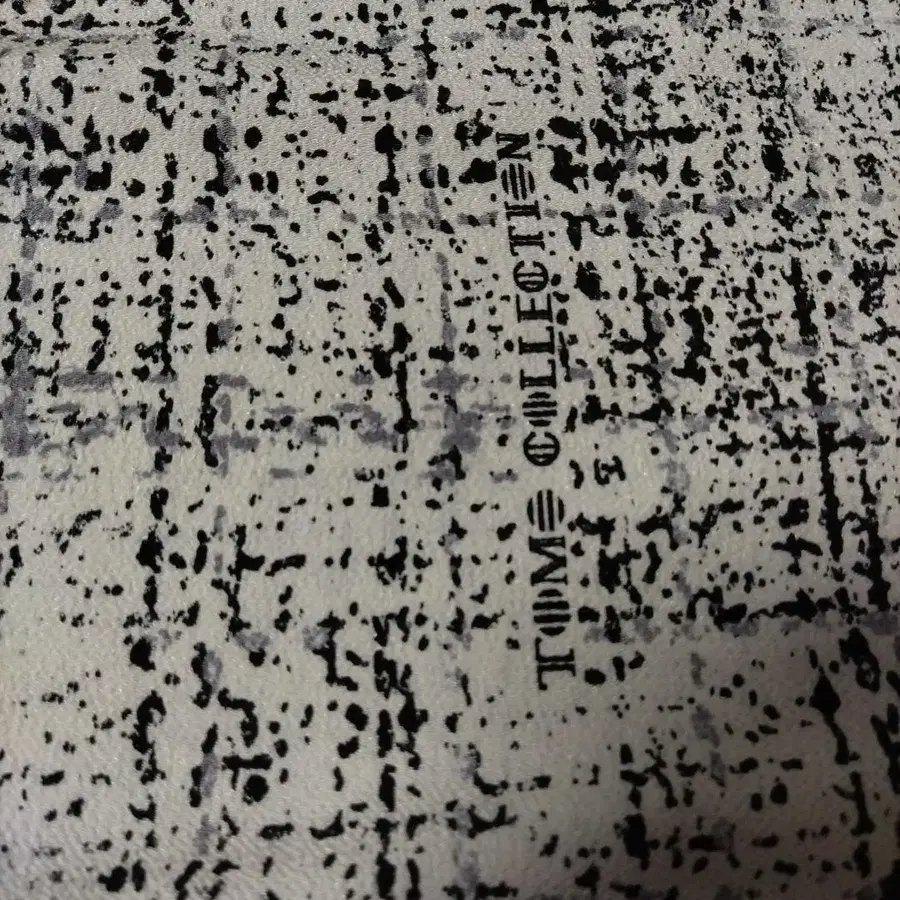 TOMO COLLECTION